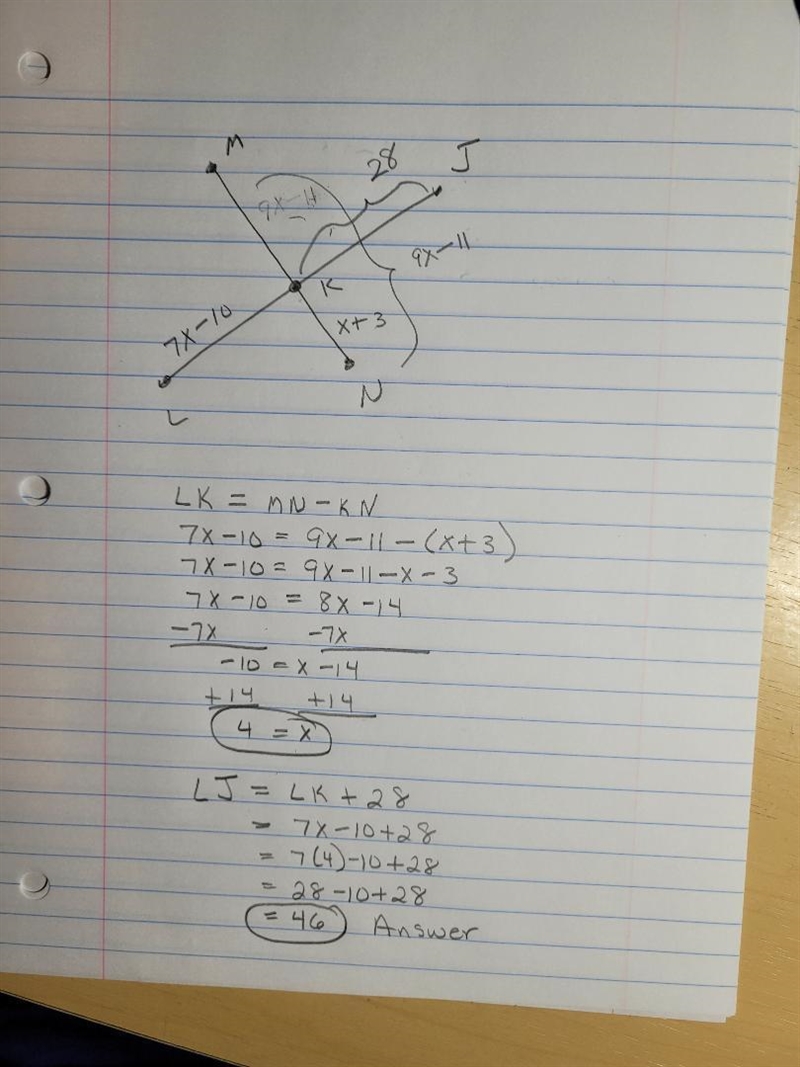 M
28
J
9x-11
9x-11
K
7x-10
x+3
N
L
LK = MN - KN
7x-10 = 9x-11-(x+3)
7x-10 = 9x-11-x-3
7x-10 = 8x-14
-7x -7x
-10 = x-14
+14 +14
4 = x
LJ = LK + 28
= 7x-10+28
= 7(4)-10+28
= 28-10+28
= 46 Answer